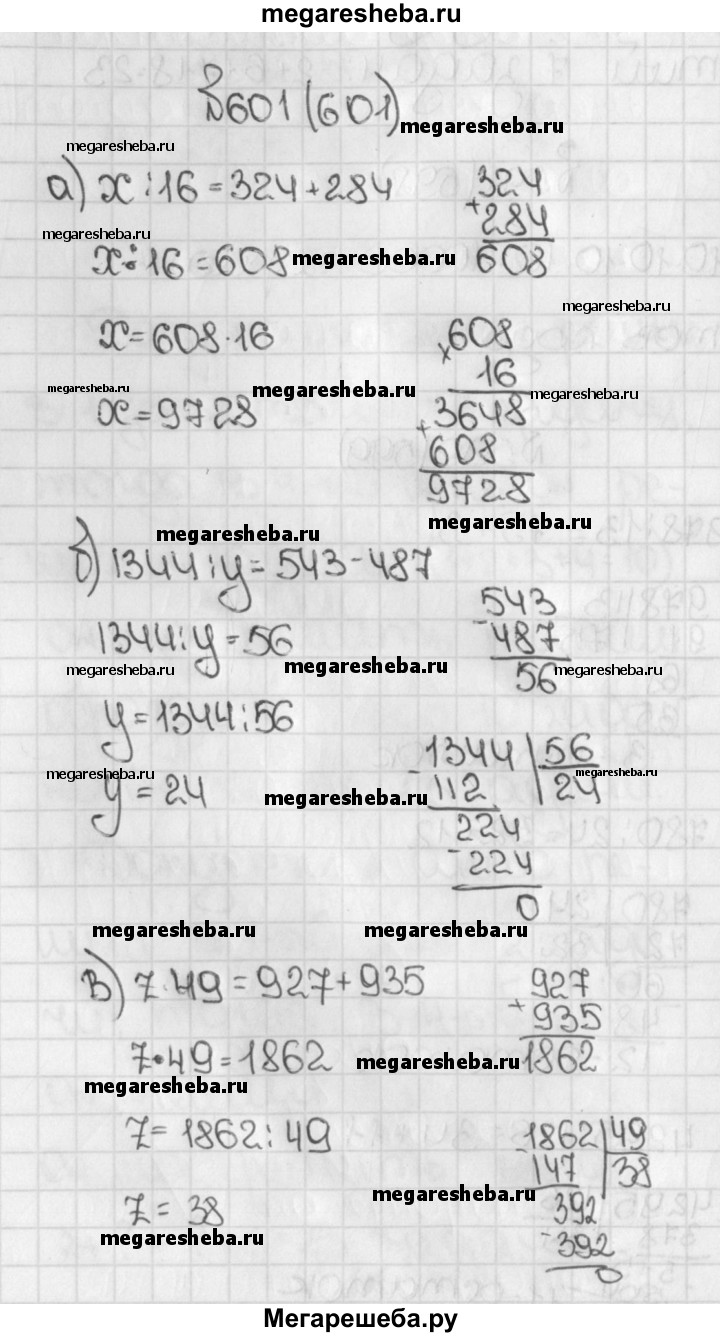 megaresheba.ru
№601 (601)
megaresheba.ru
megaresheba.ru
а) x:16=324+284
324
+284
608
megaresheba.ru
x:16=608
megaresheba.ru
megaresheba.ru
x=608·16
×608
16
3648
+608
9728
megaresheba.ru
megaresheba.ru
megaresheba.ru
x=9728
megaresheba.ru
megaresheba.ru
б) 1344:y=543-487
543
-487
56
1344:y=56
megaresheba.ru
megaresheba.ru
megaresheba.ru
y=1344:56
-1344|56
112 24
224
-224
0
megaresheba.ru
megaresheba.ru
y=24
megaresheba.ru
megaresheba.ru
megaresheba.ru
в) z·49=927+935
927
+935
1862
z·49=1862
megaresheba.ru
megaresheba.ru
z=1862:49
-1862|49
147 38
392
-392
0
z=38
megaresheba.ru
megaresheba.ru
Мегарешеба.ру